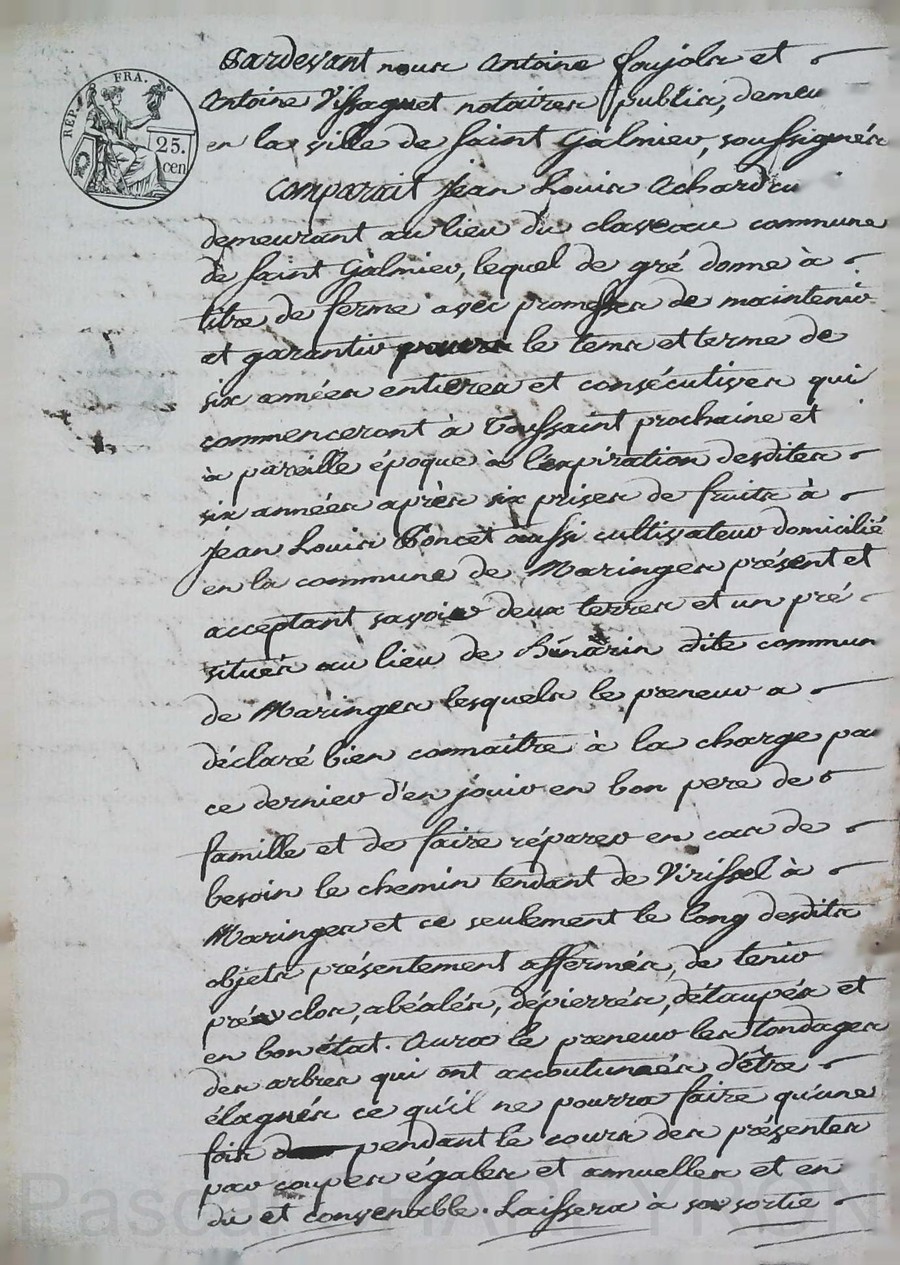 REP. FRA.
25.
cen
Pardevant nous Antoine Poujols et
Antoine Vissaguet notaires publis, demeu
en la ville de Saint Galmier, soussignés
Comparait Jean Louis Achard cu
demeurant au lieu du claveau commune
de Saint Galmier, lequel de gré donne à
titre de ferme avec promesse de maintenir
et garantir le tems et terme de
six années entieres et consécutives qui
commenceront à Toussaint prochaine et
à pareille époque à l'expiration desdites
six années après six prises de fruits à
Jean Louis Poncet aussi cultivateur domicilié
en la commune de Maringes présent et
acceptant savoir deux terres et un pré
situés au lieu de dite commun
de Maringes lesquels le preneur a
déclaré bien connaitre à la charge par
ce dernier d'en jouir en bon pere de
famille et de faire réparer en cas de
besoin le chemin tendant de Virissel à
Maringes et ce seulement le long desdits
objets présentement affermés, de tenir
prés clos, abéalés, dépierrés, détaupés et
en bon état. Aura le preneur les tondages
des arbres qui ont accoutumés d'être
élagués ce qu'il ne pourra faire qu'une
fois pendant le cours des présentes
par coupes égales et annuelles et en
du et convenable. Laissera à sa sortie
Pascal HAREYRON